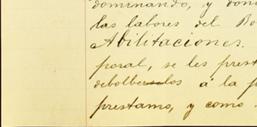 dominando, y don
las labores del Bo
Abilitaciones.
poral, se les prest
debolberlos á la p
prestamo, y como